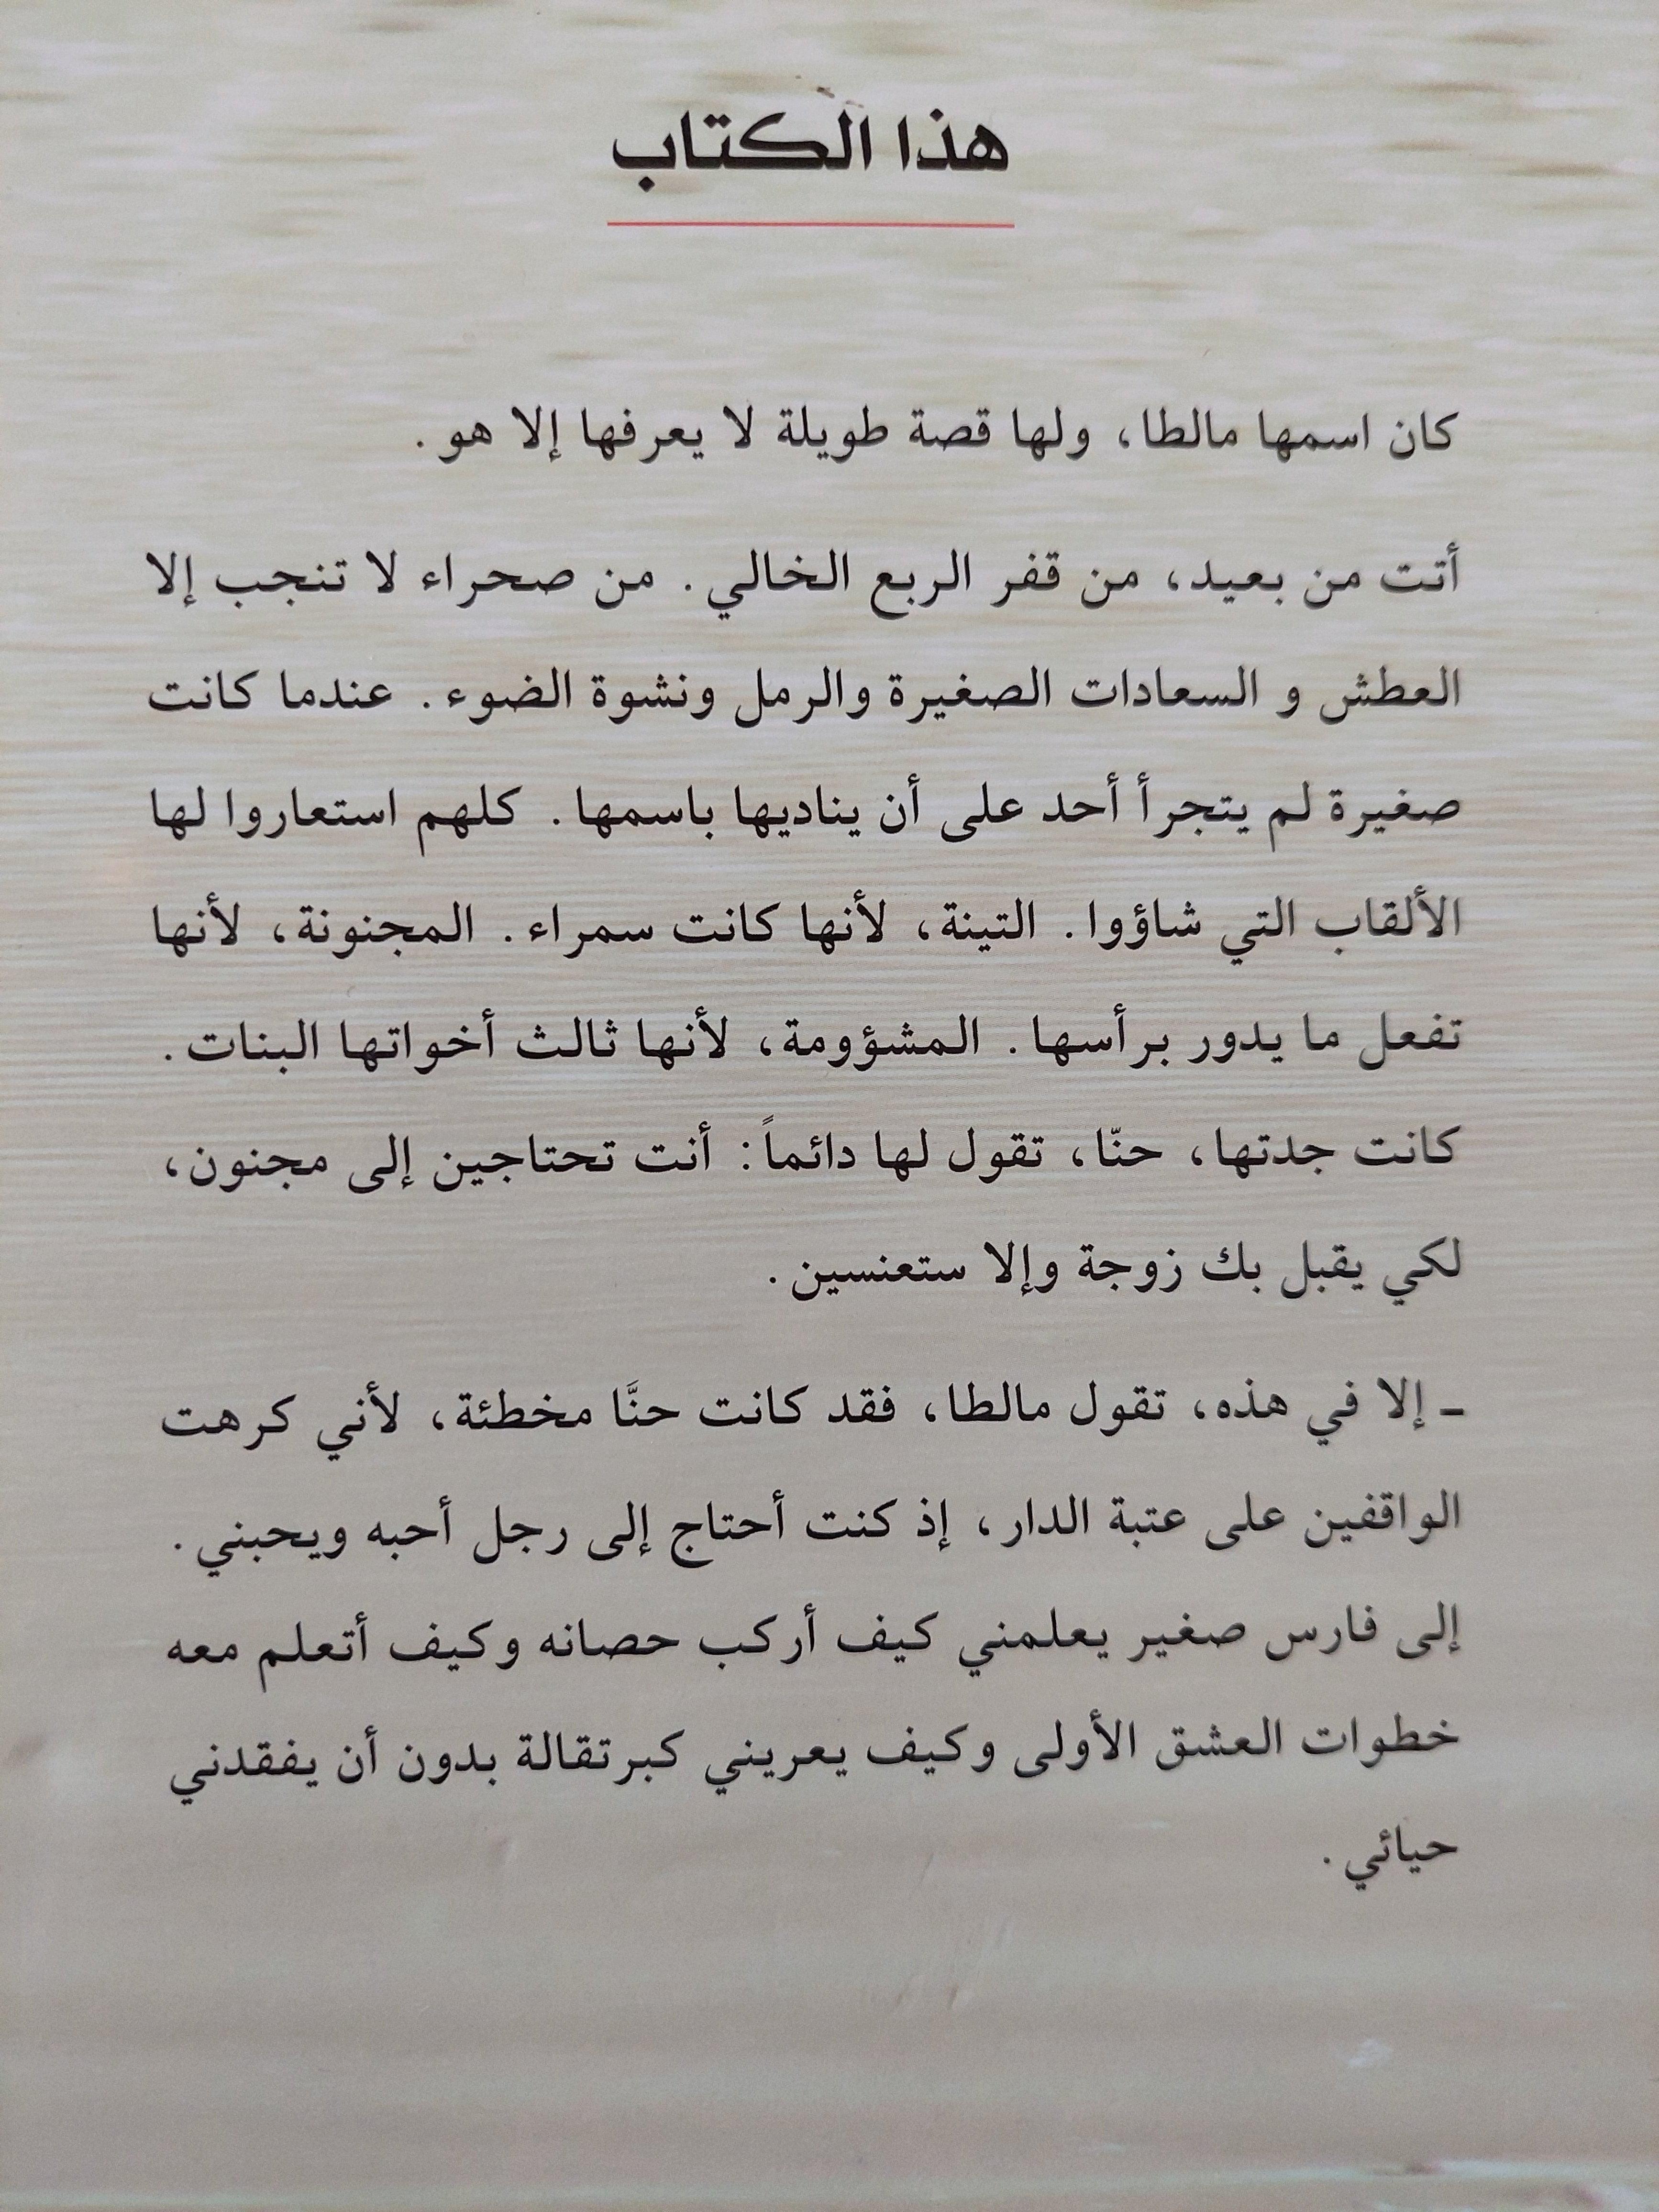 هذا الكتاب
كان اسمها مالطا، ولها قصة طويلة لا يعرفها إلا هو.
أتت من بعيد، من قفر الربع الخالي. من صحراء لا تنجب إلا
العطش و السعادات الصغيرة والرمل ونشوة الضوء. عندما كانت
صغيرة لم يتجرأ أحد على أن يناديها باسمها. كلهم استعاروا لها
الألقاب التي شاؤوا. التينة، لأنها كانت سمراء. المجنونة، لأنها
تفعل ما يدور برأسها. المشؤومة، لأنها ثالث أخواتها البنات.
كانت جدتها، حنّا، تقول لها دائماً: أنت تحتاجين إلى مجنون،
لكي يقبل بك زوجة وإلا ستعنسين.
ـ إلا في هذه، تقول مالطا، فقد كانت حنَّا مخطئة، لأني كرهت
الواقفين على عتبة الدار، إذ كنت أحتاج إلى رجل أحبه ويحبني.
إلى فارس صغير يعلمني كيف أركب حصانه وكيف أتعلم معه
خطوات العشق الأولى وكيف يعريني كبرتقالة بدون أن يفقدني
حيائي.